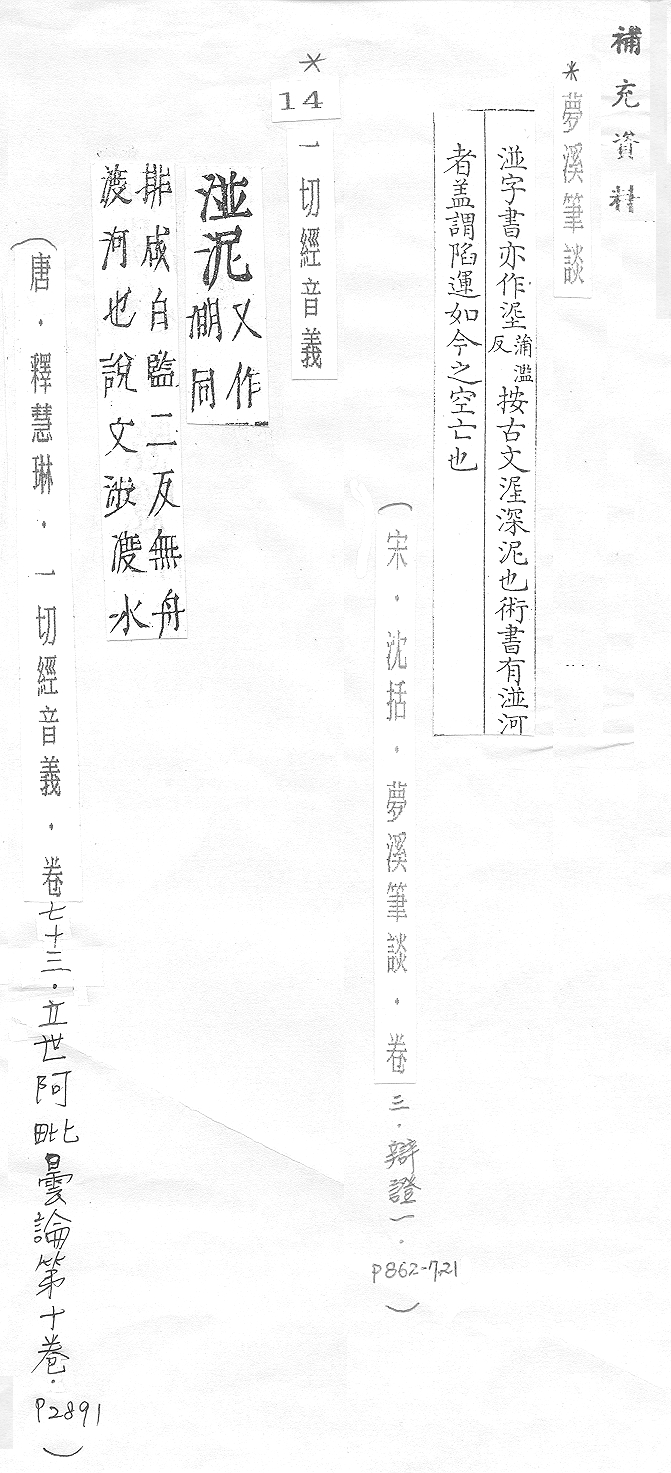 補充資料
*夢溪筆談
湴字書亦作埿蒲濫反按古文湼深泥也術書有湴河
者盖謂陷運如今之空亡也
(宋.沈括.夢溪筆談.卷三.辯證一.P862-7.21)
*
14
一切經音義
湴泥又作同
排咸白監二反無舟
渡河也說文渡水
(唐.釋慧琳.一切經音義.卷七十三.立世阿毗曇論第十卷.P2891)